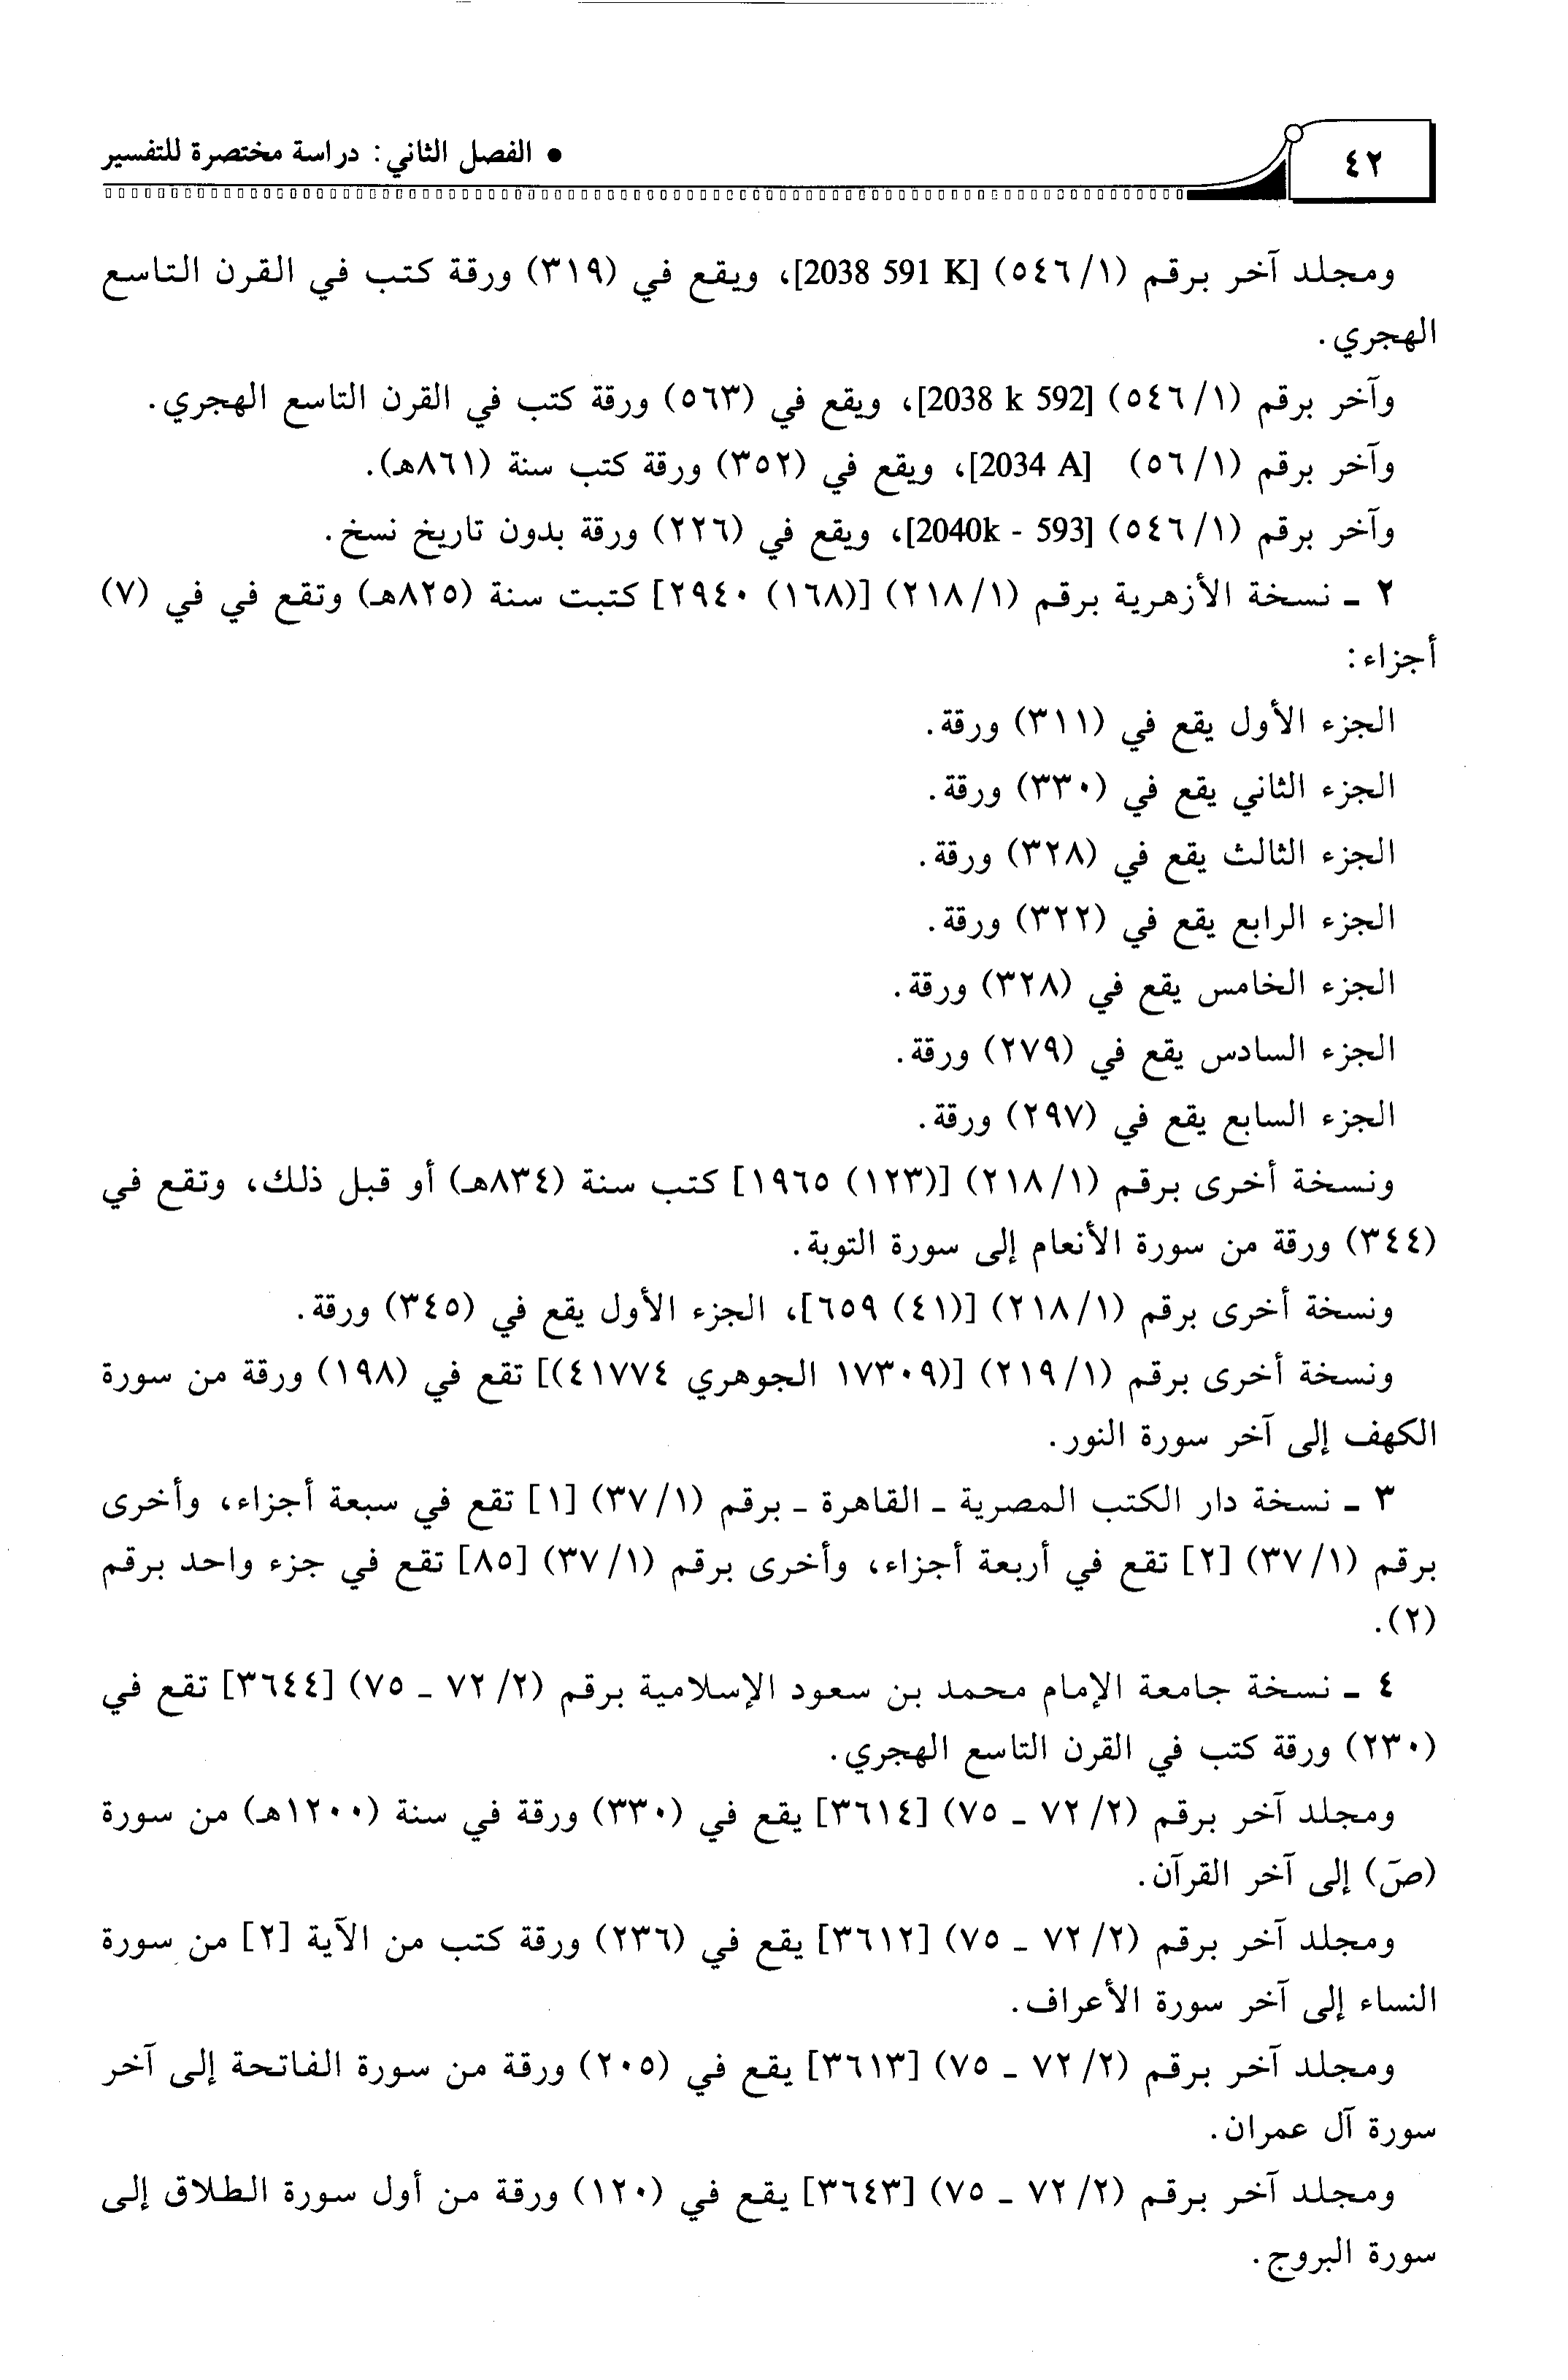 ٤٢
• الفصل الثاني: دراسة مختصرة للتفسير
ومجلد آخر برقم (٥٤٦/١) [2038 591 K]، ويقع في (٣١٩) ورقة كتب في القرن التاسع
الهجري.
وآخر برقم (٥٤٦/١) [2038 k 592]، ويقع في (٥٦٣) ورقة كتب في القرن التاسع الهجري.
وآخر برقم (٥٦/١) [2034 A]، ويقع في (٣٥٢) ورقة كتب سنة (٨٦١هـ).
وآخر برقم (٥٤٦/١) [2040k - 593]، ويقع في (٢٢٦) ورقة بدون تاريخ نسخ.
٢ ـ نسخة الأزهرية برقم (٢١٨/١) [(١٦٨) ٢٩٤٠] كتبت سنة (٨٢٥هـ) وتقع في في (٧)
أجزاء:
الجزء الأول يقع في (٣١١) ورقة.
الجزء الثاني يقع في (٣٣٠) ورقة.
الجزء الثالث يقع في (٣٢٨) ورقة.
الجزء الرابع يقع في (٣٢٢) ورقة.
الجزء الخامس يقع في (٣٢٨) ورقة.
الجزء السادس يقع في (٢٧٩) ورقة.
الجزء السابع يقع في (٢٩٧) ورقة.
ونسخة أخرى برقم (٢١٨/١) [(١٢٣) ١٩٦٥] كتب سنة (٨٣٤هـ) أو قبل ذلك، وتقع في
(٣٤٤) ورقة من سورة الأنعام إلى سورة التوبة.
ونسخة أخرى برقم (٢١٨/١) [(٤١) ٦٥٩]، الجزء الأول يقع في (٣٤٥) ورقة.
ونسخة أخرى برقم (٢١٩/١) [(١٧٣٠٩ الجوهري ٤١٧٧٤)] تقع في (١٩٨) ورقة من سورة
الكهف إلى آخر سورة النور.
٣ ـ نسخة دار الكتب المصرية ـ القاهرة ـ برقم (٣٧/١) [١] تقع في سبعة أجزاء، وأخرى
برقم (٣٧/١) [٢] تقع في أربعة أجزاء، وأخرى برقم (٣٧/١) [٨٥] تقع في جزء واحد برقم
(٢).
٤ ـ نسخة جامعة الإمام محمد بن سعود الإسلامية برقم (٧٢/٢ ـ ٧٥) [٣٦٤٤] تقع في
(٢٣٠) ورقة كتب في القرن التاسع الهجري.
ومجلد آخر برقم (٧٢/٢ ـ ٧٥) [٣٦١٤] يقع في (٣٣٠) ورقة في سنة (١٢٠٠هـ) من سورة
(صَ) إلى آخر القرآن.
ومجلد آخر برقم (٧٢/٢ ـ ٧٥) [٣٦١٢] يقع في (٢٣٦) ورقة كتب من الآية [٢] من سورة
النساء إلى آخر سورة الأعراف.
ومجلد آخر برقم (٧٢/٢ ـ ٧٥) [٣٦١٣] يقع في (٢٠٥) ورقة من سورة الفاتحة إلى آخر
سورة آل عمران.
ومجلد آخر برقم (٧٢/٢ ـ ٧٥) [٣٦٤٣] يقع في (١٢٠) ورقة من أول سورة الطلاق إلى
سورة البروج.